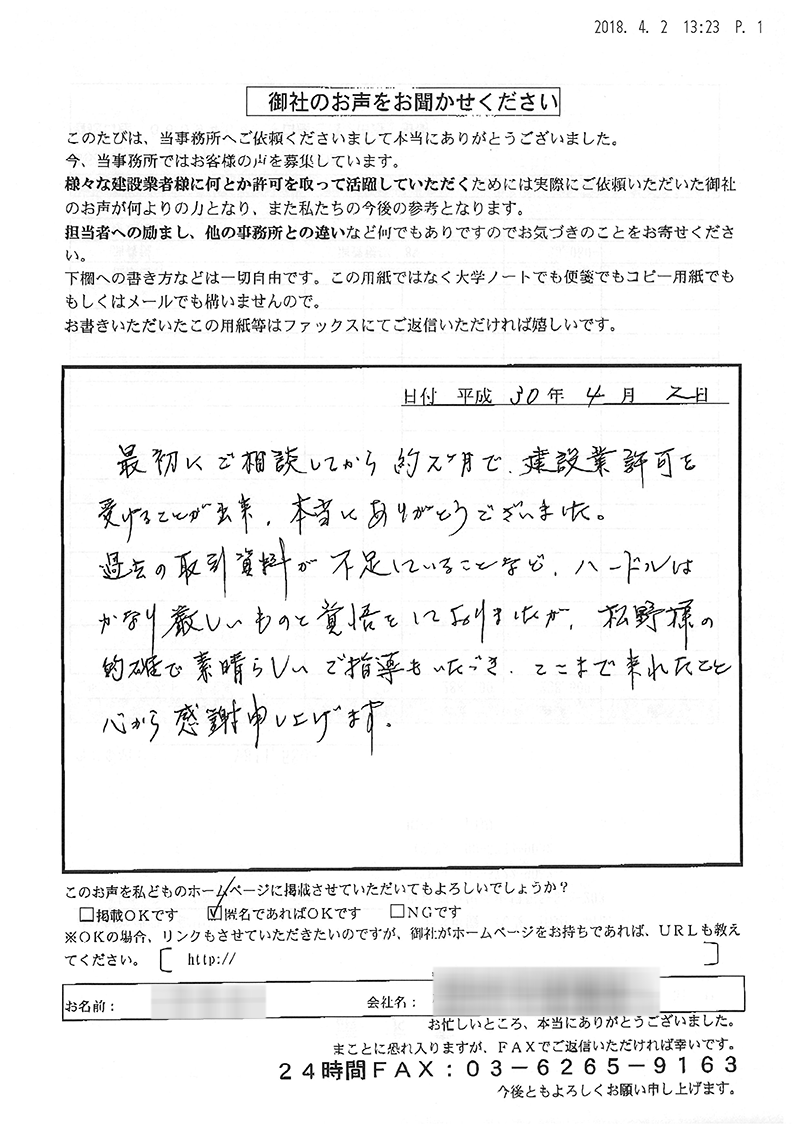 2018. 4. 2 13:23 P. 1
御社のお声をお聞かせください
このたびは、当事務所へご依頼くださいまして本当にありがとうございました。
今、当事務所ではお客様の声を募集しています。
様々な建設業者様に何とか許可を取って活躍していただくためには実際にご依頼いただいた御社
のお声が何よりの力となり、また私たちの今後の参考となります。
担当者への励まし、他の事務所との違いなど何でもありですのでお気づきのことをお寄せくださ
い。
下欄への書き方などは一切自由です。この用紙ではなく大学ノートでも便箋でもコピー用紙でも
もしくはメールでも構いませんので。
お書きいただいたこの用紙等はファックスにてご返信いただければ嬉しいです。
日付 平成 30年 4月 2日
最初にご相談してから約2ヶ月で、建設業許可を
受けることが出来、本当にありがとうございました。
過去の取引資料が不足していることなど、ハードルは
かなり厳しいものと覚悟をしておりましたが、松野様の
的確で素晴らしいご指導をいただき、ここまで来れたこと
心から感謝申し上げます。
このお声を私どものホームページに掲載させていただいてもよろしいでしょうか？
□掲載ＯＫです ☑匿名であればＯＫです □ＮＧです
※ＯＫの場合、リンクもさせていただきたいのですが、御社がホームページをお持ちであれば、ＵＲＬも教え
てください。〔 http:// 〕
お名前： 会社名：
お忙しいところ、本当にありがとうございました。
まことに恐れ入りますが、ＦＡＸでご返信いただければ幸いです。
２４時間ＦＡＸ：０３－６２６５－９１６３
今後ともよろしくお願い申し上げます。